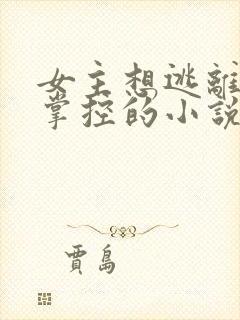 女主想逃離
掌控的小說
賈島